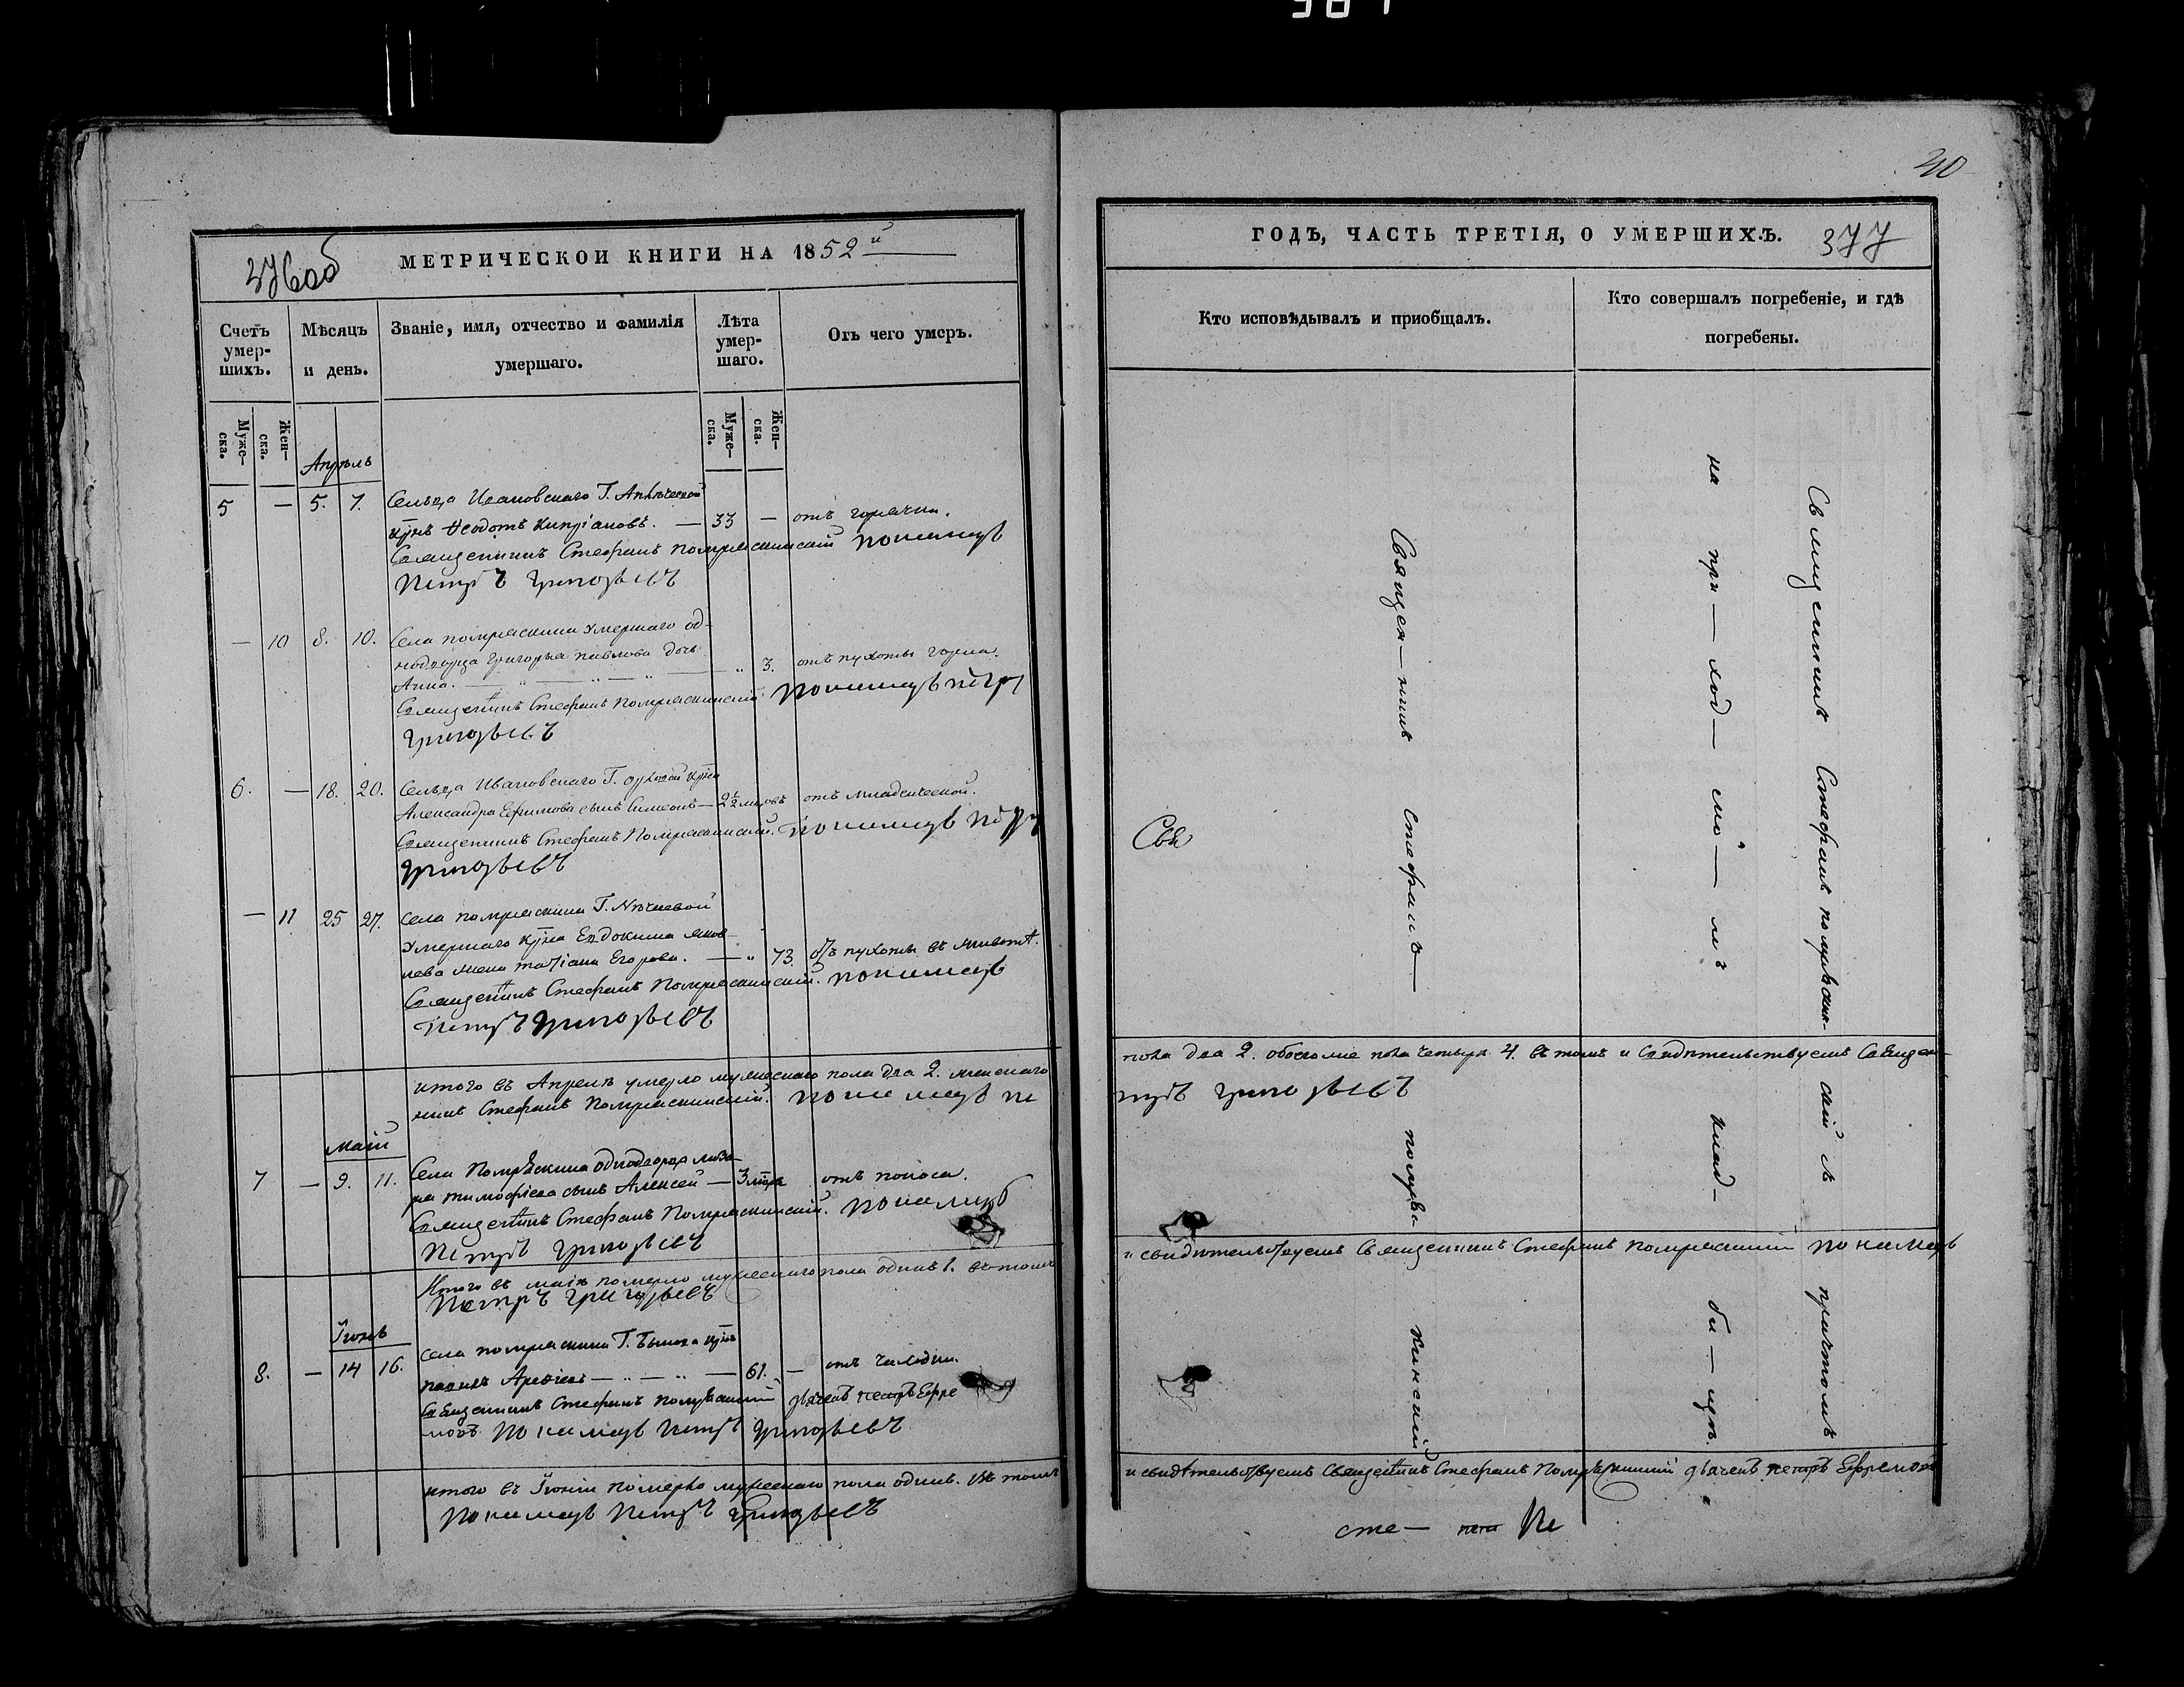 387
376об
МЕТРИЧЕСКОЙ КНИГИ НА 1852й
Счетъ умер-
шихъ.
Мѣсяцъ
и день.
Званіе, имя, отчество и фамилія
умершаго.
Лѣта
умер-
шаго.
Отъ чего умеръ.
Муже-
ска.
Жен-
ска.
Муже-
ска.
Жен-
ска.
Апрѣль
5 — 5. 7. Сельца Ивановскаго Г.
Ѳеодотъ Кипріановъ. — 33 — отъ горячки.
Священникъ Стефанъ Помряскинскій пономарь
Петръ Григорьевъ
— 10 8. 10. Села Помряскина умершаго од-
нодворца Григорья Павлова дочь
Анна. — " — " — " — " 3. отъ пухоты горла.
Священникъ Стефанъ Помряскинскій. пономарь петръ
Григорьевъ
6. — 18. 20. Сельца Ивановскаго Г.
Александра Ефимова сынъ Симеонъ — 2½ отъ младенческой.
Священникъ Стефанъ Помряскинскій. пономарь петръ
Григорьевъ
— 11 25 27. Села Помряскина Г.
умершаго Евдокима Яков-
лева жена Татіана Егорова. — " 73. отъ пухоты въ животѣ.
Священникъ Стефанъ Помряскинскій. пономарь
петръ Григорьевъ
итого въ Апрелѣ умерло мужескаго пола два 2. женскаго
никъ Стефанъ Помряскинскій. пономарь пе
Маій
7 — 9. 11. Села Помрѣскина однодворца
Тимофіева сынъ Алексей — 3 отъ поноса.
Священникъ Стефанъ Помряскинскій. пономарь
Петръ Григорьевъ
Итого въ маіѣ померло мужескаго пола одинъ 1. въ томъ
Петръ Григорьевъ
Іюнь
8. — 14 16. Села Помряскина Г.
— " — " — 61. — отъ
Священникъ Стефанъ Помряскинскій дьячекъ петръ Ефре
мовъ. Пономарь Петръ Григорьевъ
итого въ Іюніи померло мужескаго пола одинъ. Въ томъ
Пономарь Петръ Григорьевъ
40
ГОДЪ, ЧАСТЬ ТРЕТІЯ, О УМЕРШИХЪ. 377
Кто исповѣдывалъ и приобщалъ.
Кто совершалъ погребеніе, и гдѣ
погребены.
Свя
Священ — никъ Стефанъ — помрѣс- кинскій
на при — ход — ско — мъ клад — би — щѣ.
Священникъ Стефанъ помрѣскин- скій съ причтомъ
пола два 2. обоего пола четыре 4. въ томъ и свидѣтельствуемъ Священ-
тръ Григорьевъ
и свидѣтельствуемъ Священникъ Стефанъ Помряскинскій пономарь
и свидѣтельствуемъ Священникъ Стефанъ Помряскинскій дьячекъ петръ Ефремовъ
сте — Пе